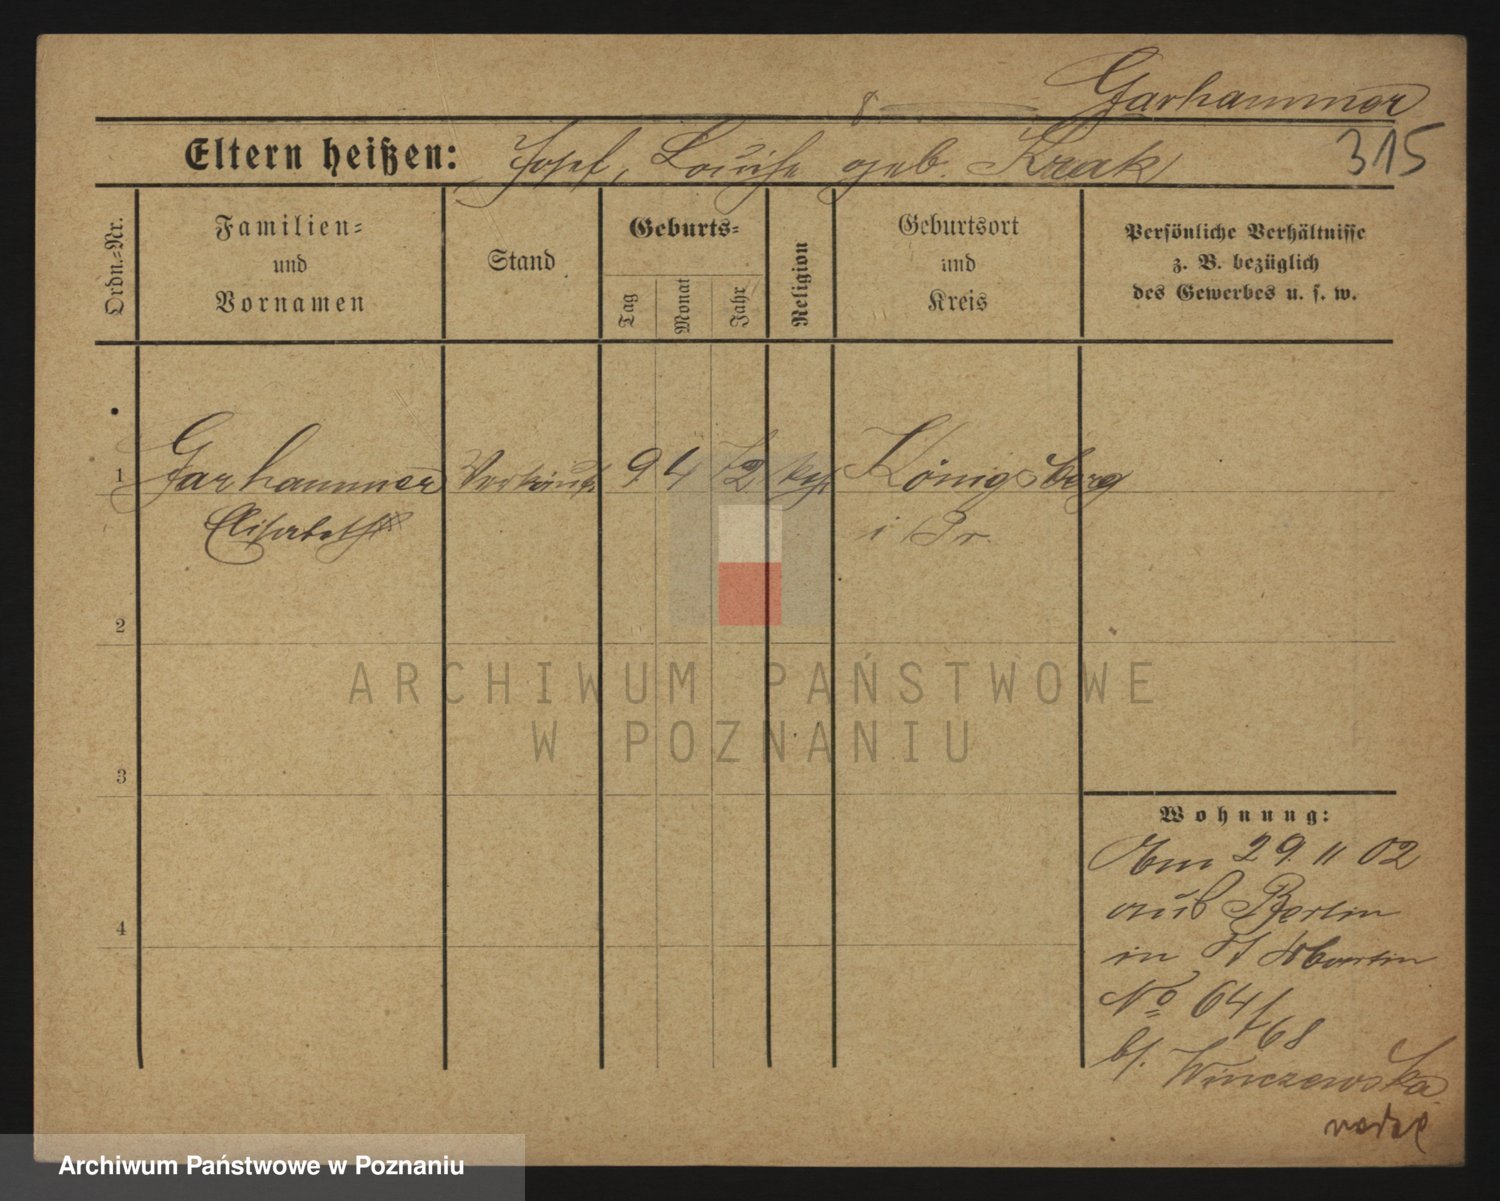 Garhammer
Eltern heißen: Josef, Louise geb. Krak
315
Ordn.-Nr.
Familien-
und
Vornamen
Stand
Geburts-
Tag
Monat
Jahr
Religion
Geburtsort
und
Kreis
Persönliche Verhältnisse
z. B. bezüglich
des Gewerbes u. s. w.
1 Garhammer 9 4 72 Königsberg
Elisabeth i Pr.
2
ARCHIWUM PAŃSTWOWE
W POZNANIU
3
Wohnung:
Am 29. 11 02
aus Berlin
4
in St Martin
No 64/68
bei Winczewska
Archiwum Państwowe w Poznaniu